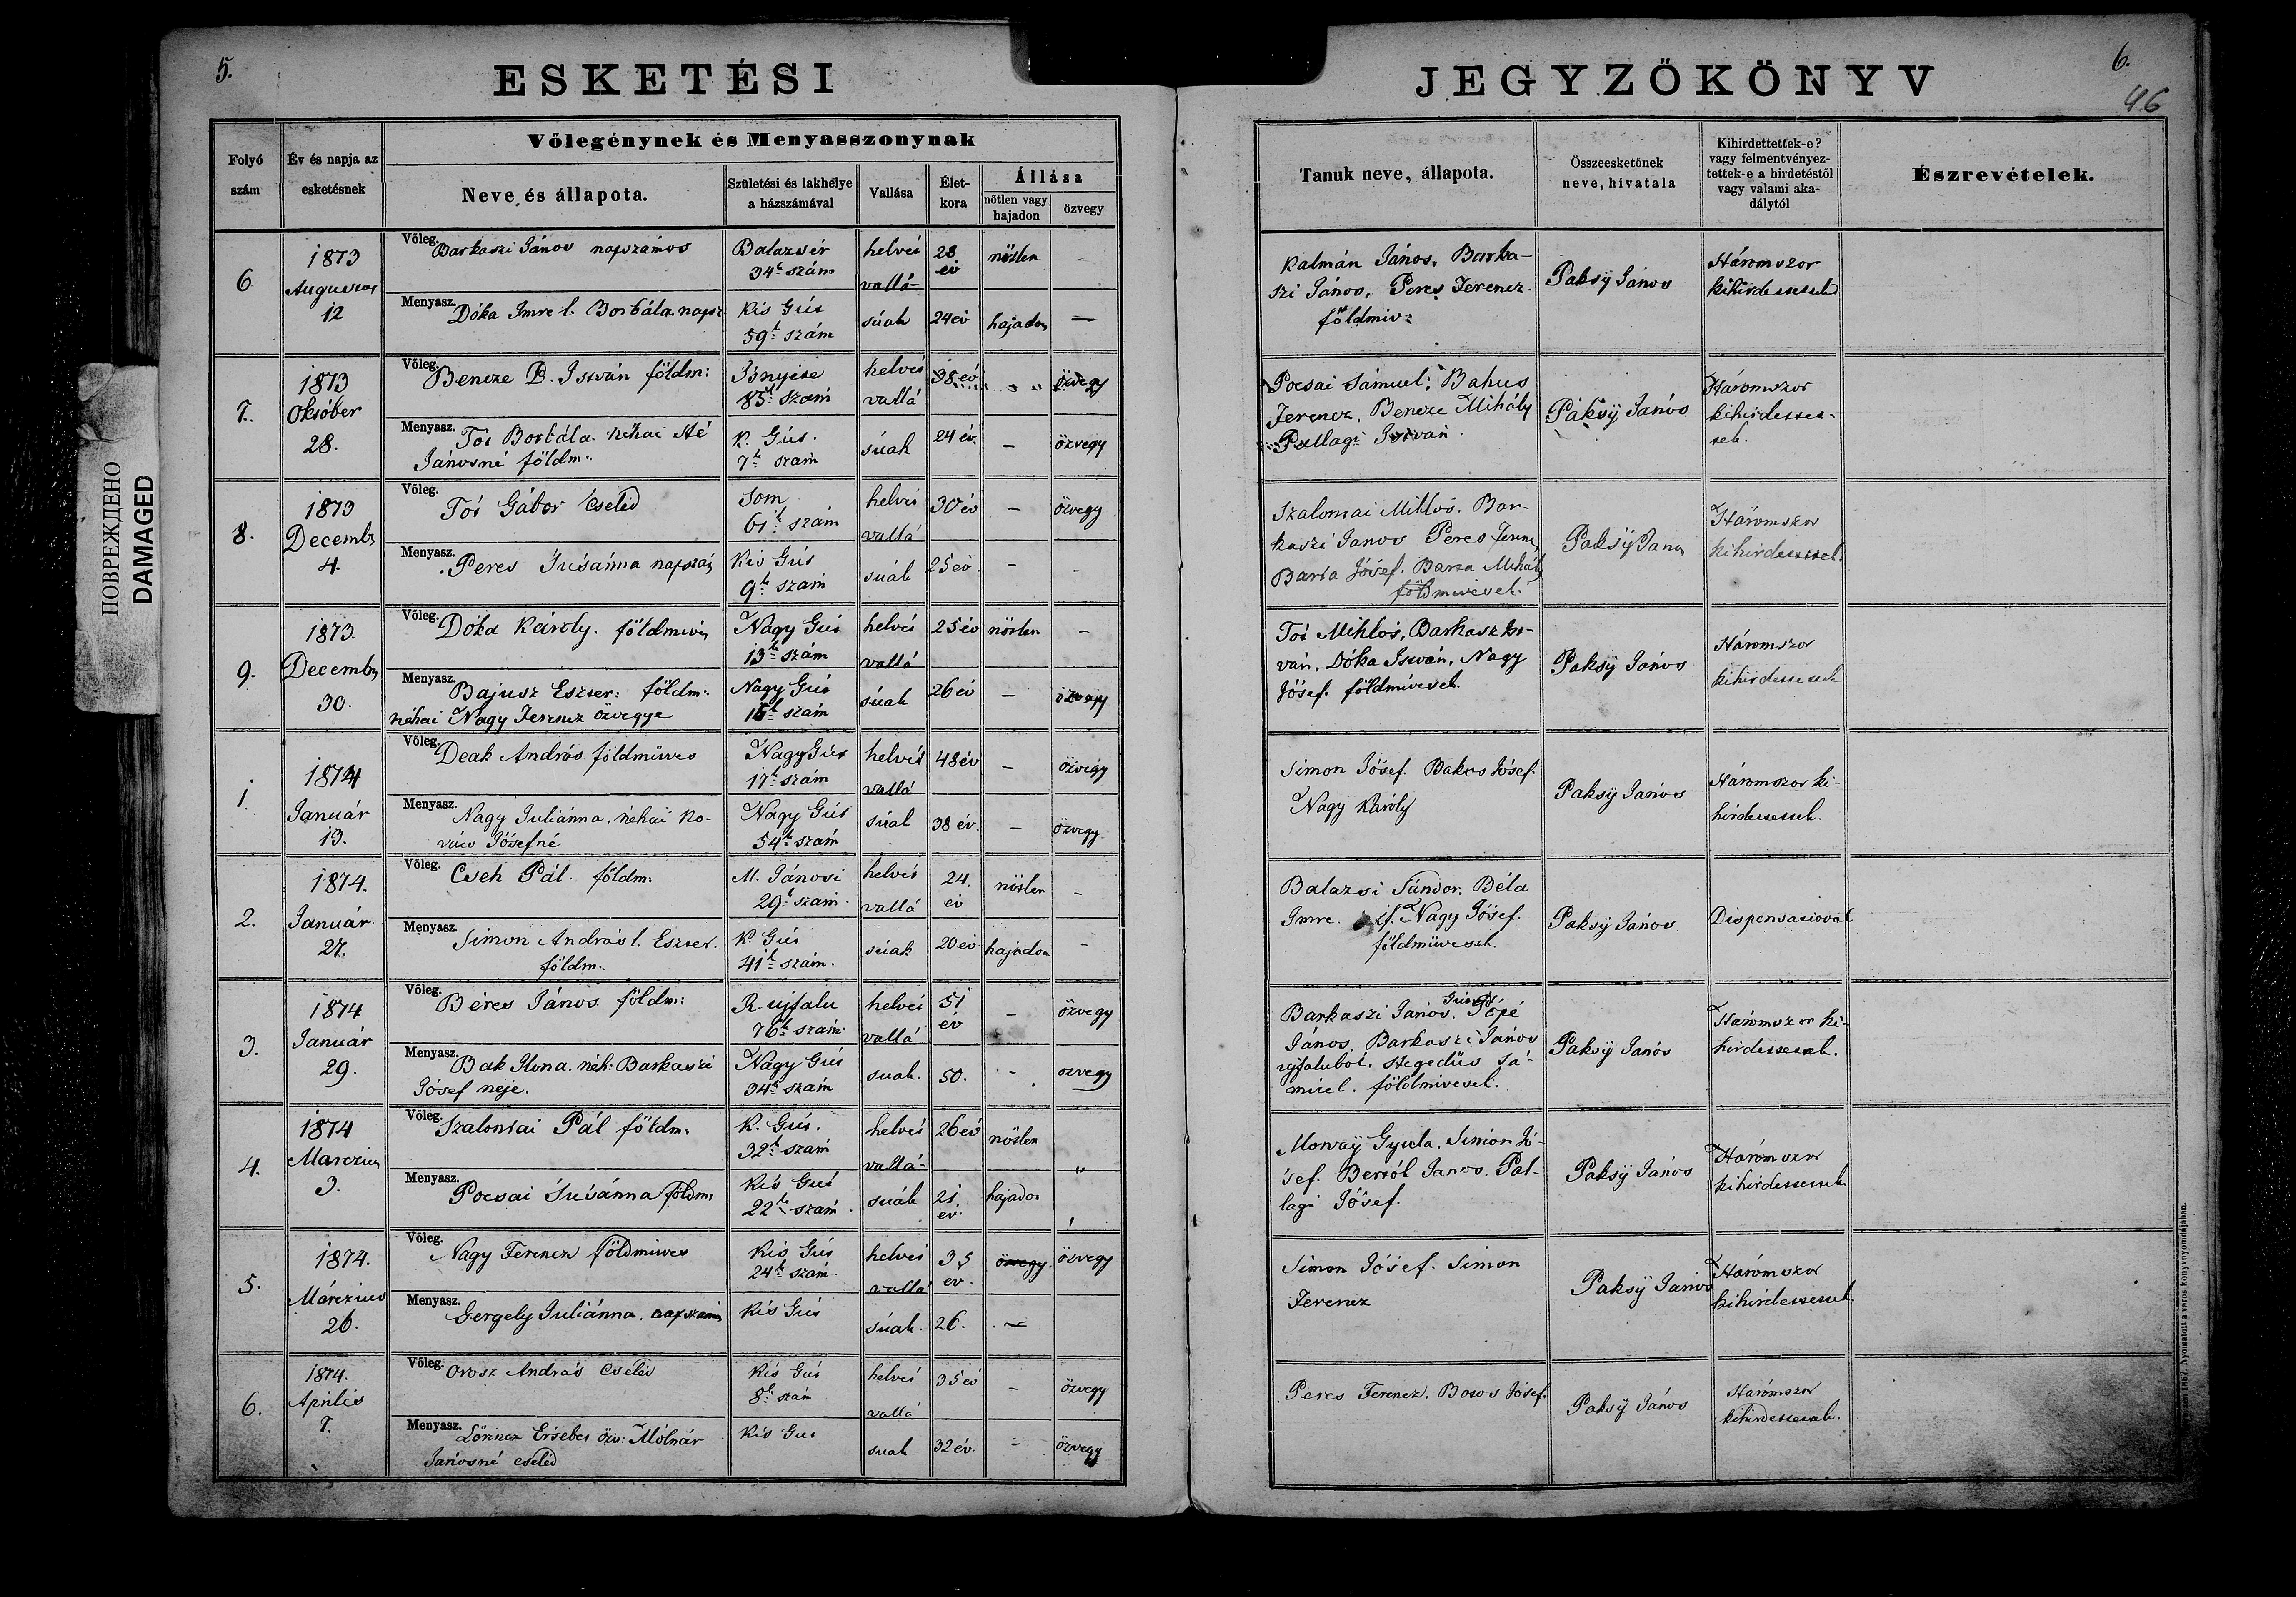 5.
ESKETÉSI
JEGYZŐKÖNYV
6.
46
ПОВРЕЖДЕНО
DAMAGED
Folyó szám
Év és napja az esketésnek
Vőlegénynek és Menyasszonynak
Neve és állapota.
Születési és lakhelye a házszámával
Vallása
Életkora
Állása
nőtlen vagy hajadon
özvegy
Tanuk neve, állapota.
Összeesketőnek neve, hivatala
Kihirdettettek-e? vagy felmentvényeztettek-e a hirdetéstől vagy valami akadálytól
Észrevételek.
6.
1873
Augustus
12
Vőleg. Barkaszi János napszámos
Balazsér
34k szám
helvét
vallá-
28
év
nőtlen
-
Menyasz. Dóka Imre l. Borbála napsz
Kis Gút
59k szám
súak
24 év
hajadon
—
Kalmán János, Barka-
szi János, Peres Ferencz
földmiv:
Paksÿ János
Háromszor
kihirdettettek
7.
1873
Október
28.
Vőleg. Bencze D. István földm:
85k szám
helvét
vallá
38 év
özvegy
Menyasz. Tót Borbála néhai
Jánosné földm:
K. Gút.
7k szám
súak
24 év.
—
özvegy
Pocsai Sámuel, Bakus
Ferencz, Bencze Mihály
Pallagi István.
Paksÿ János
Háromszor
kihirdettet-
tek.
8.
1873
Decemb
4.
Vőleg. Tót Gábor Cseléd
Som
61k szám
helvét
vallá
30 év
—
özvegy
Menyasz. Peres Susánna napszá
Kis Gút
9k szám
súak
25 év.
—
-
Szalontai Miklós, Bar-
kaszi János Peres Ferenc
Barta Jósef. Barta Mihály
földmivesek.
Paksÿ Jano
Háromszor
kihirdettettek.
9.
1873.
Decemb
30.
Vőleg. Dóka Károly. földmives
Nagy Gút
13k szám
helvét
vallá
25 év
nőtlen
—
Menyasz. Bajusz Eszter: földm:
néhai Nagy Ferencz özvegye
Nagy Gút
15k szám
súak
26 év
—
özvegy
Tót Miklós, Barkasz Ist-
ván, Dóka István, Nagy
Jósef. földmívesek.
Paksÿ János
Háromszor
kihirdettettek
1.
1874
Január
13.
Vőleg. Deak András földmüves
Nagy Gút
17k szám
helvét
vallá
48 év
—
özvegy
Menyasz. Nagy Juliánna, néhai Ko-
vács Jósefné
Nagy Gút
54k szám
súak
38 év.
—
özvegy
Simon Jósef. Bakos Jósef.
Nagy Károly
Paksÿ János
Háromszor ki-
hirdettettek.
2.
1874.
Január
27.
Vőleg. Cseh Pál. földm:
M. Jánosi
29k szám.
helvét
vallá
24.
év
nőtlen
-
Menyasz. Simon András l. Eszter.
földm:
K. Gút
41k szám.
súak
20 év
hajadon
-
Balazsi Sándor, Béla
Imre. if. Nagy Jósef.
földmüvesek.
Paksÿ János
Dispensatioval
3.
1874
Január
29.
Vőleg. Béres János földm:
R. ujfalu
76k szám.
helvét
vallá
51
év
—
özvegy
Menyasz. Bak Ilona. néh: Barkaszi
Jósef neje.
Nagy Gút
34k szám
suak.
50.
-
özvegy
Barkaszi János,
János, Barkaszi János
ujfaluból, Hegedüs Sá-
muel. földmivesek.
Paksÿ János
Háromszor ki-
hirdettettek.
4.
1874
Marczius
3.
Vőleg. Szalontai Pál földm:
K. Gút.
32k szám
helvét
vallá-
26 év
nőtlen
"
Menyasz. Pocsai Susánna földm:
Kis Gút
22k szám.
suák
21
év.
hajadon
Morvaÿ Gyula, Simon Jó-
sef. Bertók Janos, Pal-
lagi Jósef.
Paksÿ János
Háromszor
kihirdettettek
5.
1874.
Márczius
26.
Vőleg. Nagy Ferencz földmives
Kis Gút
24k szám.
helvét
vallá
35
év.
özvegy
özvegy
Menyasz. Gergely Juliánna, napszám
Kis Gút
súak.
26.
—
Simon Jósef. Simon
Ferencz
Paksÿ János
Háromszor
kihirdettettek.
6.
1874.
Aprilis
7.
Vőleg. Orosz András Cseléd
Kis Gút
8k szám
helvét
vallá
35 év
—
özvegy
Menyasz. Lörincz Ersébet özv: Molnár
Jánosné cseléd
Kis Gut
suak
32 év.
-
özvegy
Peres Ferencz, Jósef.
Paksÿ János
Háromszor
kihirdettettek.